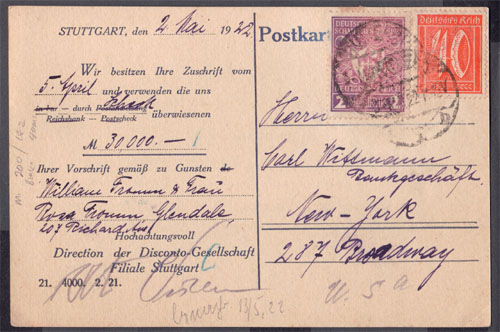 STUTTGART, den 2 Mai 1922
Wir besitzen Ihre Zuschrift vom
5. April und verwenden die uns
in bar – durch Postanweisung
Scheck
Reichsbank – Postscheck überwiesenen
M. 30,000.—
Ihrer Vorschrift gemäß zu Gunsten de
William Fromm & Frau
Rosa Fromm, Glendale
207 Richard Ave
Hochachtungsvoll
Direction der Disconto-Gesellschaft
Filiale Stuttgart
21. 4000. 2. 21.
13/5, 22
Postkarte
Deutsches Reich
40
2
Herrn
Carl Wittmann
Bankgeschäft
New-York
287 Broadway
U.S.A